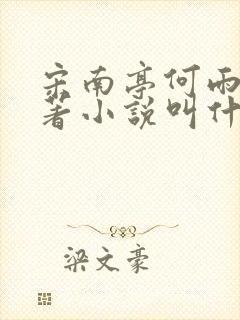 宋南亭何雨
著小说叫什
梁文豪